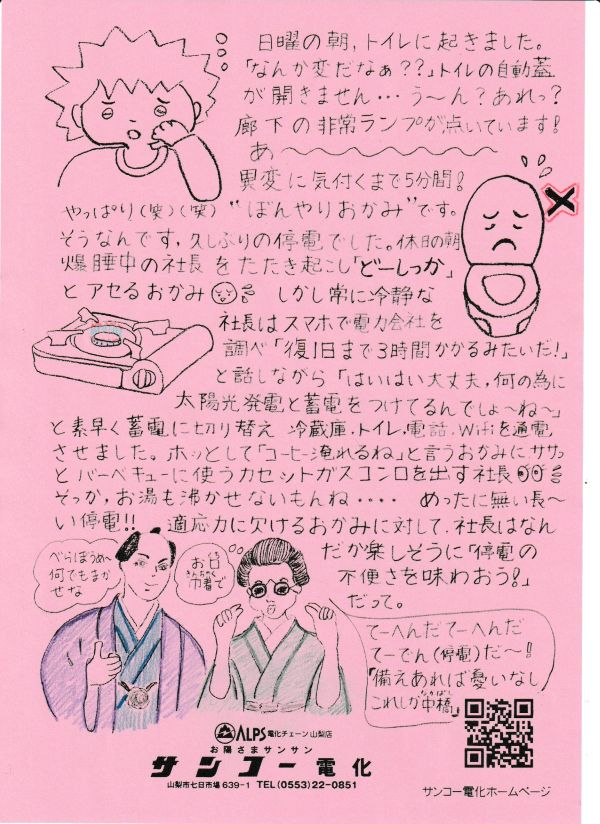 日曜の朝,トイレに起きました。
「なんか変だなぁ??」トイレの自動蓋
が開きません・・・う〜ん?あれっ?
廊下の非常ランプが点いています!
あ〜〜〜〜〜〜〜〜〜〜
異変に気付くまで5分間!
やっぱり(笑)(笑)“ぼんやりおかみ”です。
そうなんです,久しぶりの停電でした。休日の朝
爆睡中の社長をたたき起こし「どーしっか」
とアセるおかみ しかし常に冷静な
社長はスマホで電力会社を
調べ「復旧まで3時間かかるみたいだ!」
と話しながら「はいはい大丈夫,何の為に
太陽光発電と蓄電をつけてるんでしょ〜ね〜」
と素早く蓄電に切り替え 冷蔵庫,トイレ,電話,Wifiを通電
させました。ホッとして「コーヒー淹れるね」と言うおかみにササッ
とバーベキューに使うカセットガスコンロを出す社長
そっか,お湯も沸かせないもんね・・・・ めったに無い長〜
い停電!! 適応力に欠けるおかみに対して,社長はなん
だか楽しそうに「停電の
不便さを味わおう!」
だって。
べらぼうめ〜
何でもまか
せな
お日
きんちゃく
巾着で
てーへんだてーへんだ
てーでん(停電)だ〜!
「備えあれば憂いなし
なかばし
これしか中橋」
ALPS 電化チェーン山梨店
お陽さまサンサン
サンコー電化
山梨市七日市場639-1 TEL(0553)22-0851
サンコー電化ホームページ